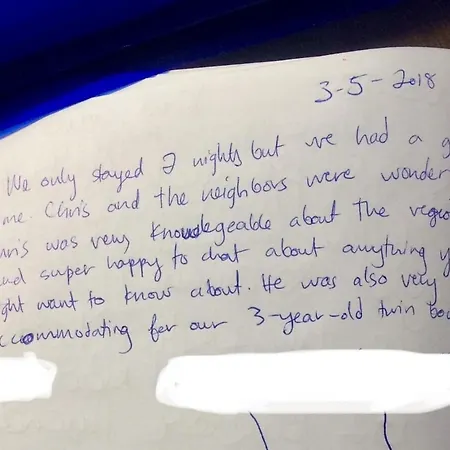 3-5-2018
We only stayed 2 nights but we had a g
me. Chris and the neighbors were wonder
hris was very knowledgeable about the regio
nd super happy to chat about anything y
ght want to know about. He was also very
ccommodating for our 3-year-old twin bo